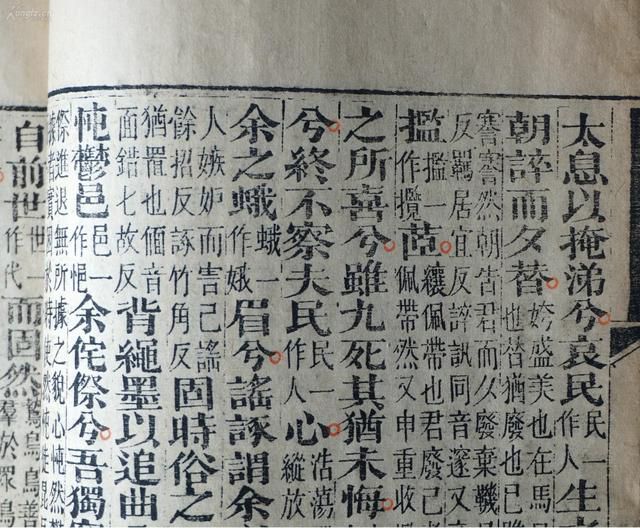 太息以掩涕兮哀民民一作人生
朝誶而夕替姱盛美也在馬
也替猶廢也
謇謇然朝告君而夕廢棄
反羈居宜反誶訊同音邃又
㩜㩜一作攬茝纕佩帶也君廢己
佩帶然又申重收
之所喜兮雖九死其猶未悔
兮終不察夫民民一作人心浩蕩
縱放
余之蛾蛾一作娥眉兮謠諑謂余
人嫉妒而害己謠
餘招反諑竹角反固時俗之
猶置也偭音
面錯七故反背繩墨以追曲
忳鬱邑邑一作悒余侘傺兮吾獨窮
傺進退無所據之貌心忳然
自前世世一作代而固然鷙鳥鳥善